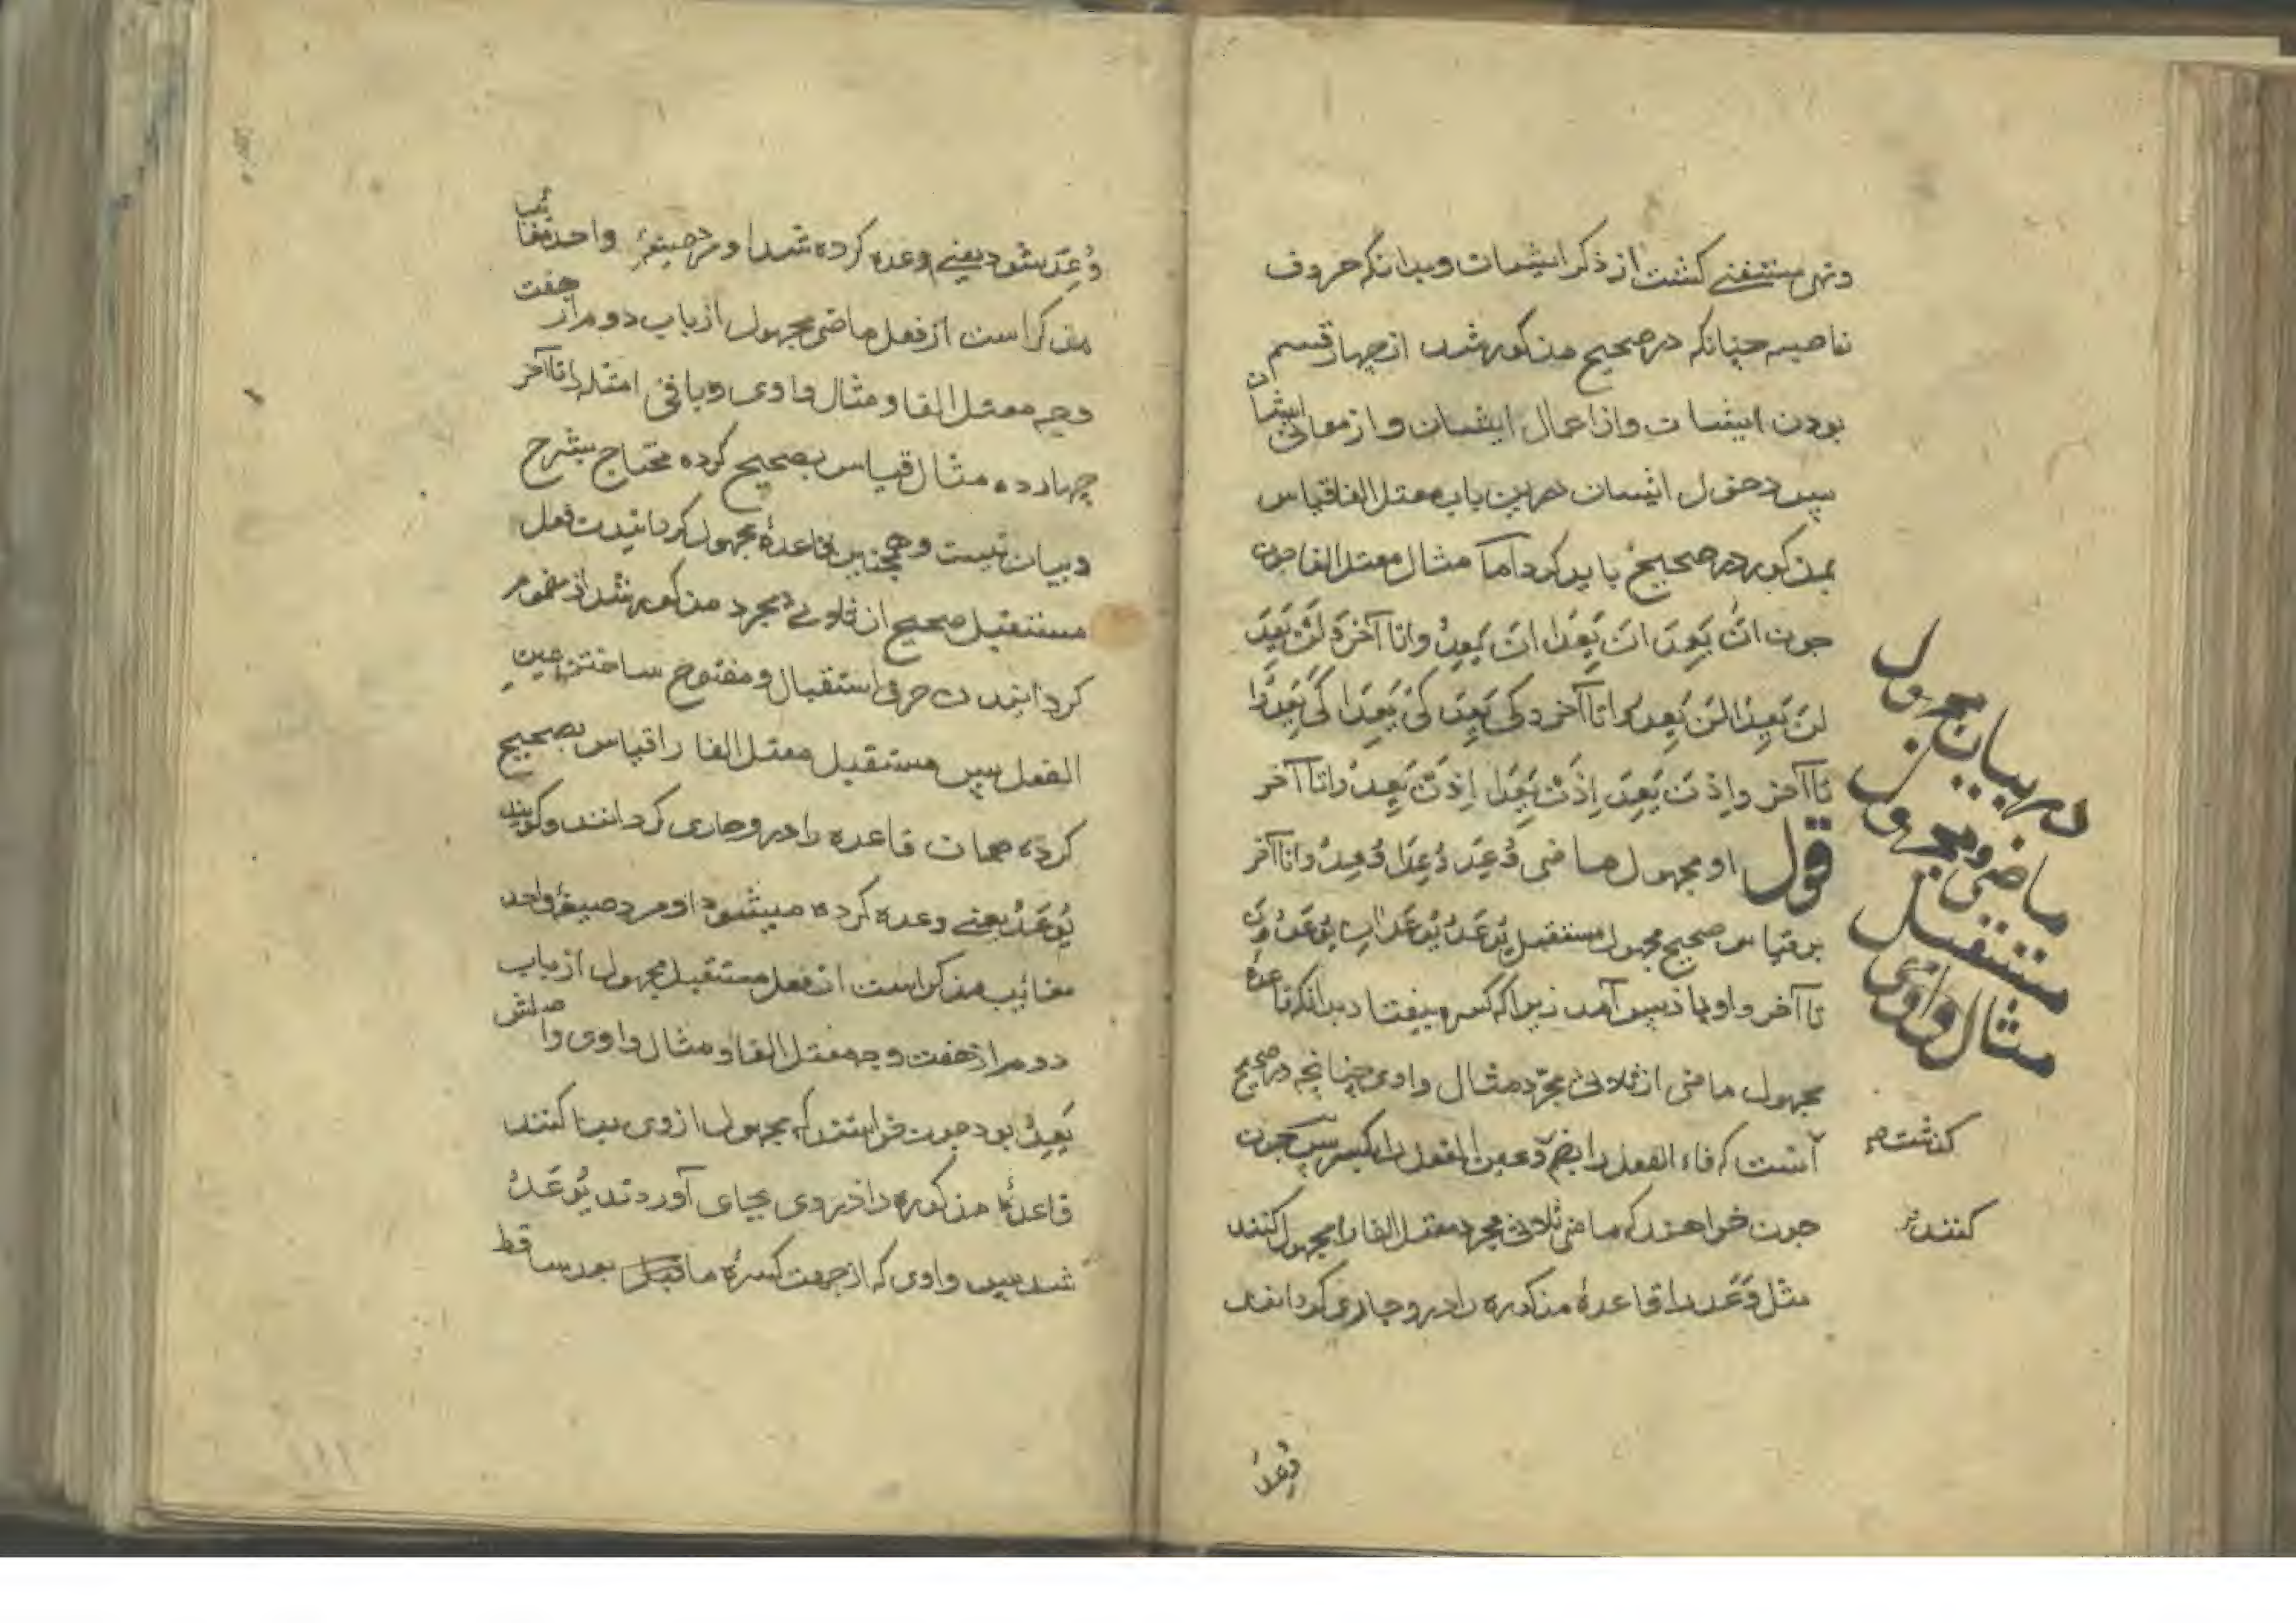 ونهی مستغنی کشت از ذکر ایشان وبدانکه حروف
ناصبه چنانکه در صحیح مذکور شد از چهار قسم
بودن ایشان واز اعمال ایشان واز معانی ایشان
پس دخول ایشان درین باب معتل الفا قیاس
بمذکور در صحیح باید کرد اما مثال معتل الفا چون
چون اَنْ یَعِدَ اَنْ یَعِدَا اَنْ یَعِدُوا تا آخره لَنْ یَعِدَ
لَنْ یَعِدَا لَنْ یَعِدُوا تا آخر و کَیْ یَعِدَ کَیْ یَعِدَا کَیْ یَعِدُوا
تا آخر واِذَنْ یَعِدَ اِذَنْ یَعِدَا اِذَنْ یَعِدُوا تا آخر
قول او مجهول ماضی وُعِدَ وُعِدَا وُعِدُوا تا آخر
بر قیاس صحیح مجهول مستقبل یُوعَدُ یُوعَدَانِ یُوعَدُونَ
تا آخر واو باز پس آمد زیرا که کسره بیفتاد بدانکه قاعدهٔ
مجهول ماضی از ثلاثی مجرّد مثال واوی چنانچه در صحیح
گذشت
آنست که فاء الفعل را بضم وعین الفعل را بکسر پس چون
کنند
چون خواهند که ماضی ثلاثی مجرد معتل الفا را مجهول کنند
مثل وَعَدَ را قاعدهٔ مذکوره را درو جاری گردانند
وُعِدَ
در بیان مجهول
ماضی ومجهول
مستقبل
مثال واوی
وُعِدَ شود یعنی وعده کرده شد او مرد صیغهٔ واحد مغائب
مذکر است از فعل ماضی مجهول از باب دوم از هفت
وجه معتل الفا و مثال واوی وباقی امثله را تا آخر
چهارده مثال قیاس بصحیح کرده محتاج بشرح
وبیان نیست وهمچنین قاعدهٔ مجهول گردانیدن فعل
مستقبل صحیح از ثلاثی مجرد مذکور شد از مضموم
گردانیدن حرف استقبال و مفتوح ساختن عین
الفعل پس مستقبل معتل الفا را قیاس بصحیح
کرده همان قاعده را درو جاری گردانند وگویند
یُوعَدُ یعنی وعده کرده میشود او مرد صیغهٔ واحد
مغائب مذکر است از فعل مستقبل مجهول از باب
دوم از هفت وجه معتل الفا و مثال واوی واصلش
یَعِدُ بود چون خواستند که مجهول از وی بنا کنند
قاعدهٔ مذکوره را در وی بجای آوردند یُوعَدُ
شد پس واوی که از جهت کسرهٔ ماقبل بعد ساقط